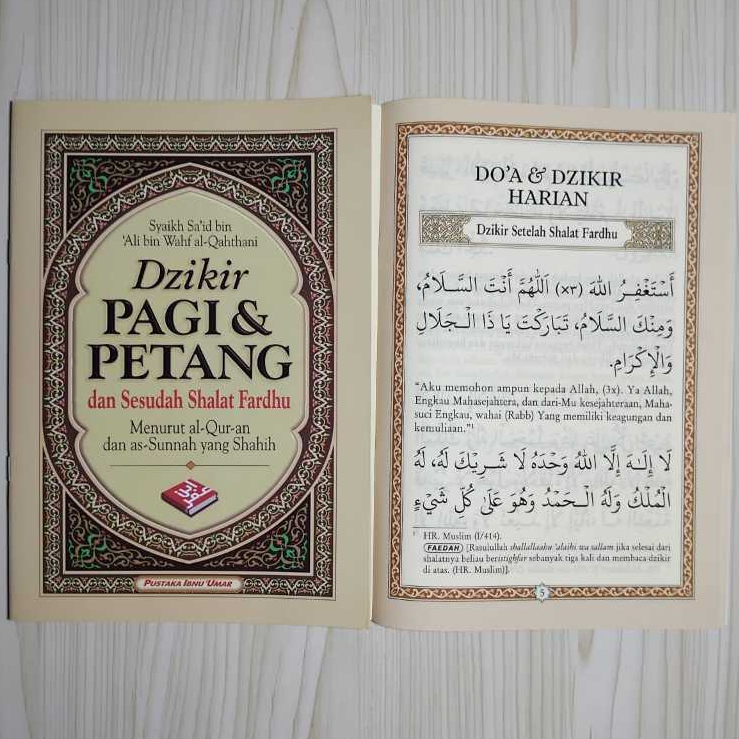 Syaikh Sa'id bin
'Ali bin Wahf al-Qahthani
Dzikir
PAGI &
PETANG
dan Sesudah Shalat Fardhu
Menurut al-Qur-an
dan as-Sunnah yang Shahih
ابن عمر
PUSTAKA IBNU 'UMAR
DO'A & DZIKIR
HARIAN
Dzikir Setelah Shalat Fardhu
أَسْتَغْفِرُ اللهَ (×٣) اَللَّهُمَّ أَنْتَ السَّلَامُ،
وَمِنْكَ السَّلَامُ، تَبَارَكْتَ يَا ذَا الْجَلَالِ
وَالْإِكْرَامِ.
"Aku memohon ampun kepada Allah, (3x). Ya Allah,
Engkau Mahasejahtera, dan dari-Mu kesejahteraan, Maha-
suci Engkau, wahai (Rabb) Yang memiliki keagungan dan
kemuliaan."¹
لَا إِلَهَ إِلَّا اللهُ وَحْدَهُ لَا شَرِيْكَ لَهُ، لَهُ
الْمُلْكُ وَلَهُ الْحَمْدُ وَهُوَ عَلَى كُلِّ شَيْءٍ
¹ HR. Muslim (I/414).
FAEDAH [Rasulullah shallallaahu 'alaihi wa sallam jika selesai dari
shalatnya beliau beristighfar sebanyak tiga kali dan membaca dzikir
di atas. (HR. Muslim)].
5